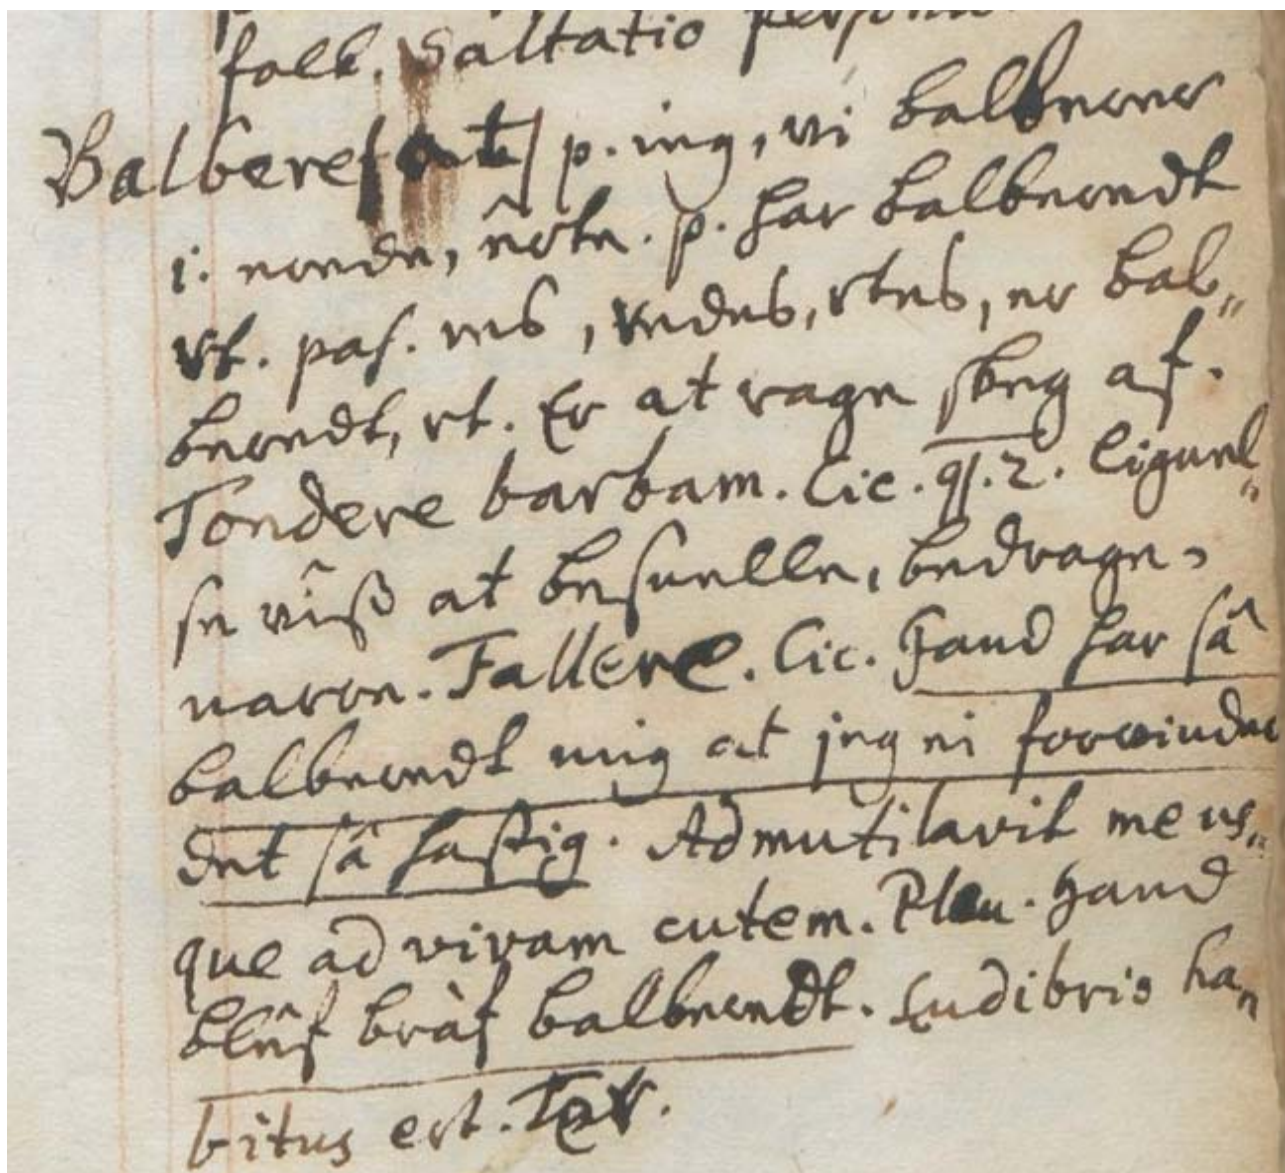 folk. Saltatio
Balbere (at) p. ing, vi balberer
i. erede, êrte. p. har balberedt
rt. pas. res, redes, rtes, er bal„
beredt, rt. Er at rage skeg af.
Tondere barbam. Cic. qſ. 2. Liguel„
se viiß at besnelle, bedrage,
narre. Fallere. Cic. Hand har så
balberedt mig at jeg ei forvinder
det så hastig. Admutilavit me us„
que ad vivam cutem. Plau. Hand
blêf bràf balberedt. Ludibrio ha„
bitus est. Ter.